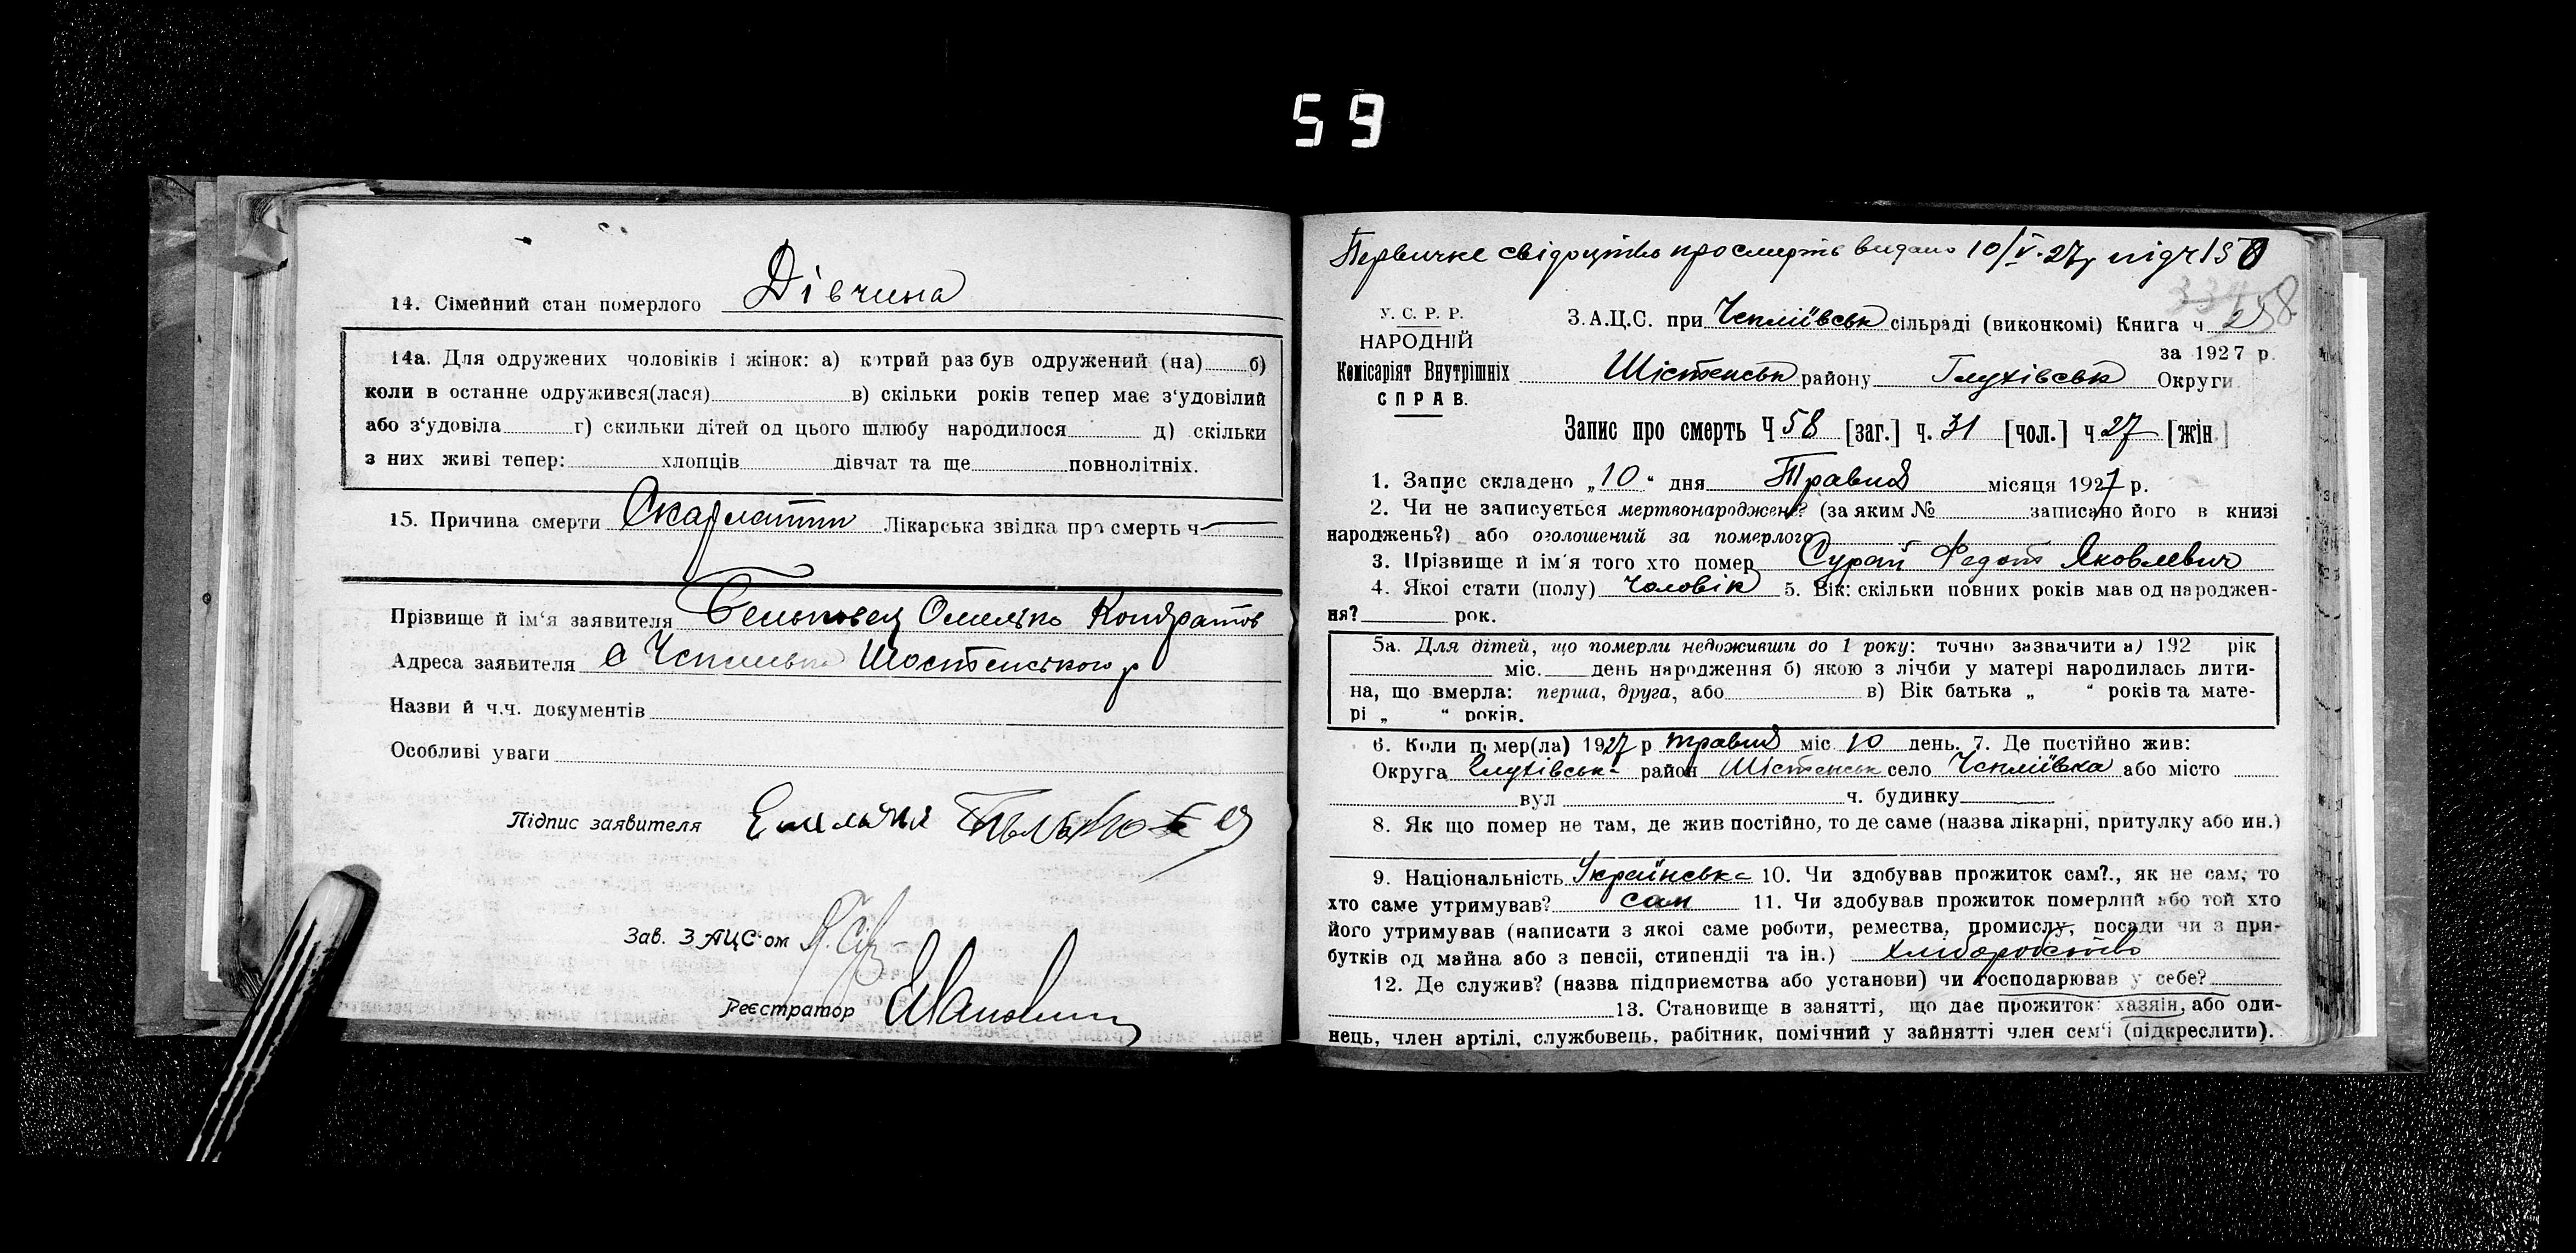 59
14. Сімейний стан померлого Дівчина
14а. Для одружених чоловіків і жінок: а) котрий раз був одружений (на) б)
коли в останне одружився(лася) в) скільки років тепер має з‘удовілий
або з‘удовіла г) скильки дітей од цього шлюбу народилося д) скільки
з них живі тепер: хлопців дівчат та ще повнолітніх.
15. Причина смерти Скарлатин Лікарська звідка про смерть ч
Прізвище й ім‘я заявителя Омелько Кондратов
Адреса заявителя с Чепліївка Шостенського р
Назви й ч.ч. документів
Особливі уваги
Підпис заявителя Емильян
Зав. ЗАЦС‘ом
Реєстратор
Первичне свідоцтво про смерть видано 10/V-27р під ч 158
У. С. Р. Р.
НАРОДНІЙ
Комісаріят Внутрішніх
СПРАВ.
З.А.Ц.С. при Чепліївськ сільраді (виконкомі) Книга ч 2 58
за 1927 р.
Шістенськ району Глухівськ Округи
Запис про смерть Ч 58 [заг.] ч. 31 [чол.] ч 27 [жін.]
1. Запис складено „10“ дня Травня місяця 1927 р.
2. Чи не записуеться мертвонароджен? (за яким № записано його в книзі
народжень?) або оголошений за померлого
3. Прізвище й ім‘я того хто помер Сурай Федот Яковлевич
4. Якої стати (полу) чоловік 5. Вік: скільки повних років мав од народжен-
ня? рок.
5а. Для дітей, що померли недоживши до 1 року: точно зазначити а) 192 рік
міс. день народження б) якою з лічби у матері народилась дити-
на, що вмерла: перша, друга, або в) Вік батька „ “ років та мате-
рі „ “ років.
6. Коли помер(ла) 1927 р травня міс 10 день. 7. Де постійно жив:
Округа Глухівськ район Шістенськ село Чепліївка або місто
вул ч. будинку
8. Як що помер не там, де жив постійно, то де саме (назва лікарні, притулку або ин.)
9. Національність Українська 10. Чи здобував прожиток сам?., як не сам, то
хто саме утримував? сам 11. Чи здобував прожиток померлий або той хто
його утримував (написати з якої саме роботи, ремества, промислу, посади чи з при-
бутків од майна або з пенсії, стипендії та ін.) хліборобство
12. Де служив? (назва підприемства або установи) чи господарював у себе?
13. Становище в занятті, що дає прожиток: хазяін, або оди-
нець, член артілі, службовець, рабітник, помічний у зайнятті член сем‘ї (підкреслити).